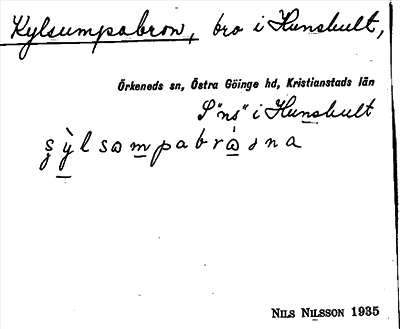 Kylsumpabron, bro i Hunshult,
Örkeneds sn, Östra Göinge hd, Kristianstads län
S"ns" i Hunshult
şỳlsampabràna
NILS NILSSON 1935